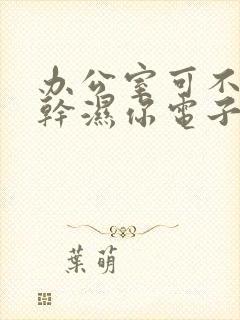 办公室可不
幹濕你電子
葉萌